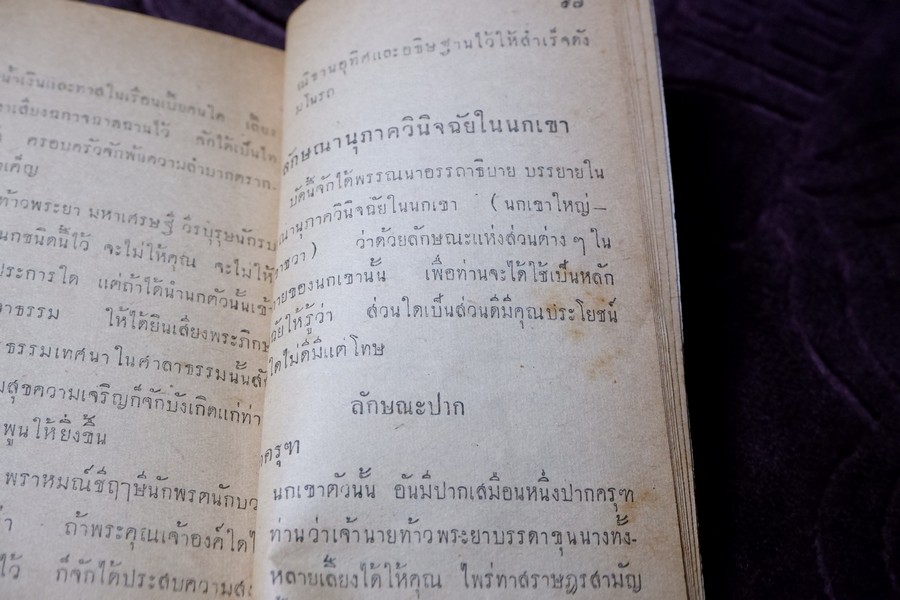 น้ำเงินและทาสในเรือนเบี้ยคนใด เลี้ยง
ครอบครัวจักพ้นความลำบากตราก-
ท้าวพระยา มหาเศรษฐี วีรบุรุษนักรบ
นกชนิดนี้ไว้ จะไม่ให้คุณ จะไม่ให้
ประการใด แต่ถ้าได้นำนกตัวนั้นเข้า
ธรรม ให้ได้ยินเสียงพระภิกษุ
ธรรมเทศนาในศาลาธรรมนั้น
สุขความเจริญก็จักบังเกิดแก่ท่า
พูนให้ยิ่งขึ้น
พราหมณ์ชีฤๅษีนักพรตนักบว
ถ้าพระคุณเจ้าองค์ใด
ไว้ ก็จักได้ประสบความส
๕๘
ณิธานอุทิศและอธิษฐานไว้ให้สำเร็จดัง
มโนรถ
ลักษณานุภาควินิจฉัยในนกเขา
บัดนี้จักได้พรรณนาอรรถาธิบาย บรรยายใน
ณานุภาควินิจฉัยในนกเขา (นกเขาใหญ่—
ชวา) ว่าด้วยลักษณะแห่งส่วนต่าง ๆ ใน
กายของนกเขานั้น เพื่อท่านจะได้ใช้เป็นหลัก
ฉัยให้รู้ว่า ส่วนใดเป็นส่วนดีมีคุณประโยชน์
ใดไม่ดีมีแต่โทษ
ลักษณะปาก
ครุฑ
นกเขาตัวนั้น อันมีปากเสมือนหนึ่งปากครุฑ
ท่านว่าเจ้านายท้าวพระยาบรรดาขุนนางทั้ง-
หลายเลี้ยงได้ให้คุณ ไพร่ทาสราษฎรสามัญ